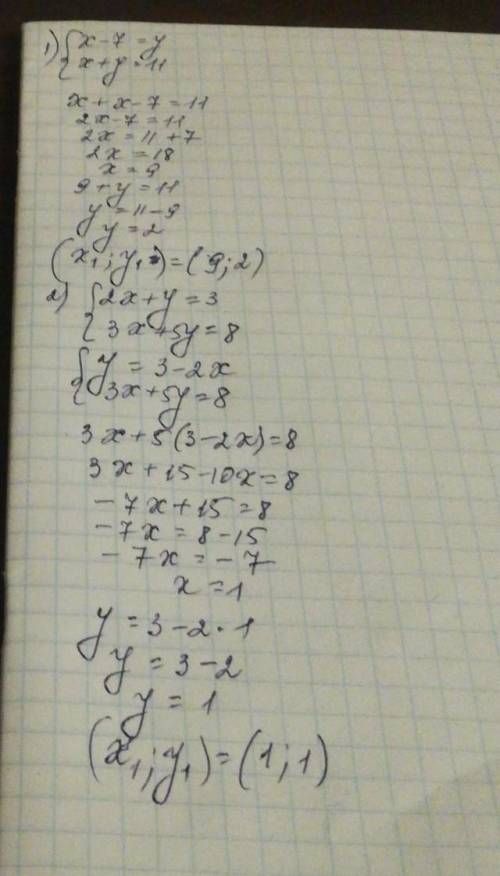 1) { x - 7 = y
x + y = 11
x + x - 7 = 11
2x - 7 = 11
2x = 11 + 7
2x = 18
x = 9
9 + y = 11
y = 11 - 9
y = 2
(x₁; y₁) = (9; 2)
2) { 2x + y = 3
3x + 5y = 8
{ y = 3 - 2x
3x + 5y = 8
3x + 5(3 - 2x) = 8
3x + 15 - 10x = 8
- 7x + 15 = 8
- 7x = 8 - 15
- 7x = - 7
x = 1
y = 3 - 2 · 1
y = 3 - 2
y = 1
(x₁; y₁) = (1; 1)